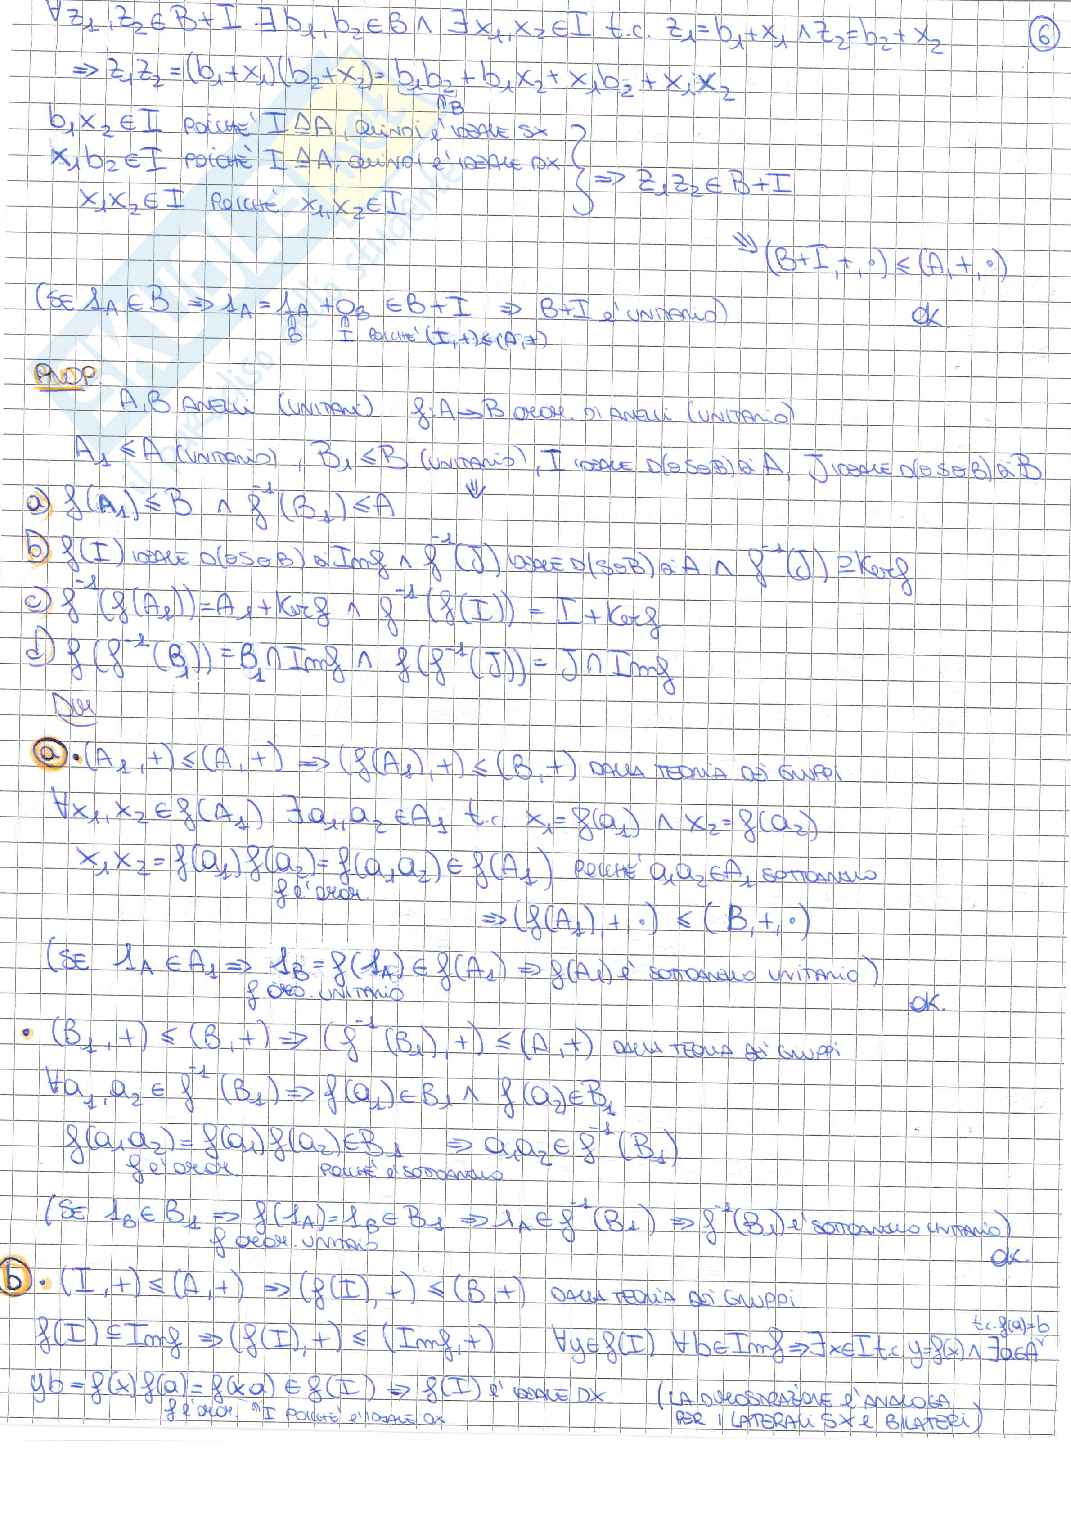 ∀z₁,z₂∈B+I ∃b₁,b₂∈B ∧ ∃x₁,x₂∈I t.c. z₁=b₁+x₁ ∧ z₂=b₂+x₂
6
⇒ z₁z₂=(b₁+x₁)(b₂+x₂)=b₁b₂+b₁x₂+x₁b₂+x₁x₂
∈B
b₁x₂∈I POICHÉ I⊴A, QUINDI È IDEALE SX
x₁b₂∈I POICHÉ I⊴A, QUINDI È IDEALE DX
⇒ z₁z₂∈B+I
x₁x₂∈I POICHÉ x₁,x₂∈I
⇒ (B+I,+,·)≤(A,+,·)
(SE 1_A∈B ⇒ 1_A=1_A+0_B ∈B+I ⇒ B+I È UNITARIO)
OK
B I POICHÉ (I,+)≤(A,+)
PROP.
A,B ANELLI (UNITARI) f:A→B OMOM. DI ANELLI (UNITARIO)
A₁≤A (UNITARIO), B₁≤B (UNITARIO), I IDEALE D(o S o B) di A, J IDEALE D(o S o B) di B
⇓
a) f(A₁)≤B ∧ f⁻¹(B₁)≤A
b) f(I) IDEALE D(o S o B) di Imf ∧ f⁻¹(J) IDEALE D(S o B) di A ∧ f⁻¹(J)⊇Kerf
c) f⁻¹(f(A₁))=A₁+Kerf ∧ f⁻¹(f(I))=I+Kerf
d) f(f⁻¹(B₁))=B₁∩Imf ∧ f(f⁻¹(J))=J∩Imf
Dim
a •(A₁,+)≤(A,+) ⇒ (f(A₁),+)≤(B,+) DALLA TEORIA DEI GRUPPI
∀x₁,x₂∈f(A₁) ∃a₁,a₂∈A₁ t.c. x₁=f(a₁) ∧ x₂=f(a₂)
x₁x₂=f(a₁)f(a₂)=f(a₁a₂)∈f(A₁) POICHÉ a₁a₂∈A₁ SOTTOANELLO
f è OMOM.
⇒ (f(A₁),+,·)≤(B,+,·)
(SE 1_A∈A₁ ⇒ 1_B=f(1_A)∈f(A₁) ⇒ f(A₁) È SOTTOANELLO UNITARIO)
f OMO. UNITARIO
OK.
• (B₁,+)≤(B,+) ⇒ (f⁻¹(B₁),+)≤(A,+) DALLA TEORIA DEI GRUPPI
∀a₁,a₂∈f⁻¹(B₁) ⇒ f(a₁)∈B₁ ∧ f(a₂)∈B₁
f(a₁a₂)=f(a₁)f(a₂)∈B₁ ⇒ a₁a₂∈f⁻¹(B₁)
f è OMOM. POICHÉ È SOTTOANELLO
(SE 1_B∈B₁ ⇒ f(1_A)=1_B∈B₁ ⇒ 1_A∈f⁻¹(B₁) ⇒ f⁻¹(B₁) È SOTTOANELLO UNITARIO)
f OMOM. UNITARIO
OK
b • (I,+)≤(A,+) ⇒ (f(I),+)≤(B,+) DALLA TEORIA DEI GRUPPI
t.c. f(a)=b
f(I)⊆Imf ⇒ (f(I),+)≤(Imf,+) ∀y∈f(I) ∀b∈Imf ⇒ ∃x∈I t.c. y=f(x) ∧ ∃a∈A
yb=f(x)f(a)=f(xa)∈f(I) ⇒ f(I) È IDEALE DX (LA DIMOSTRAZIONE È ANALOGA
f è OMOM. ∈I POICHÉ È IDEALE DX PER I LATERALI SX E BILATERI)